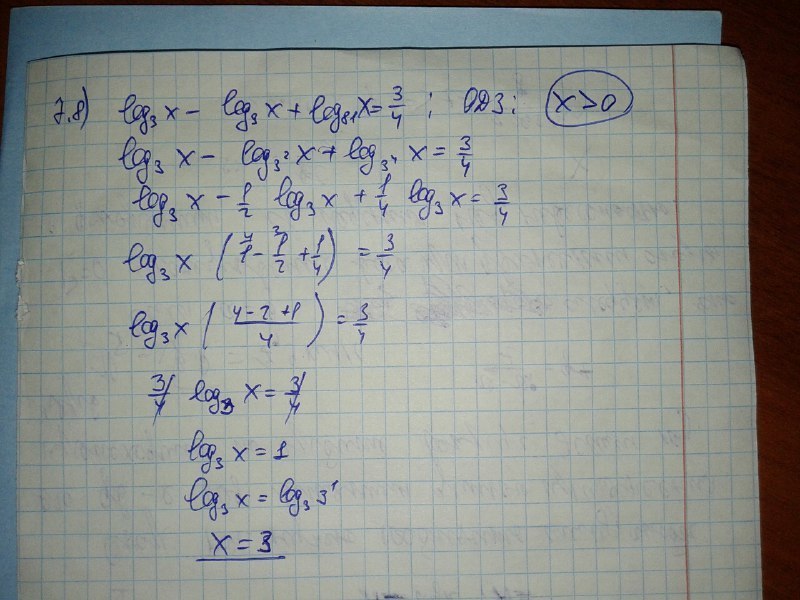 7.8) log₃ x − log₃ x + log₈₁ x = 3/4 ; ОДЗ: x > 0
log₃ x − log₃² x + log₃⁴ x = 3/4
log₃ x − 1/2 log₃ x + 1/4 log₃ x = 3/4
log₃ x (1 − 1/2 + 1/4) = 3/4
log₃ x ((4 − 2 + 1)/4) = 3/4
3/4 log₃ x = 3/4
log₃ x = 1
log₃ x = log₃ 3¹
x = 3